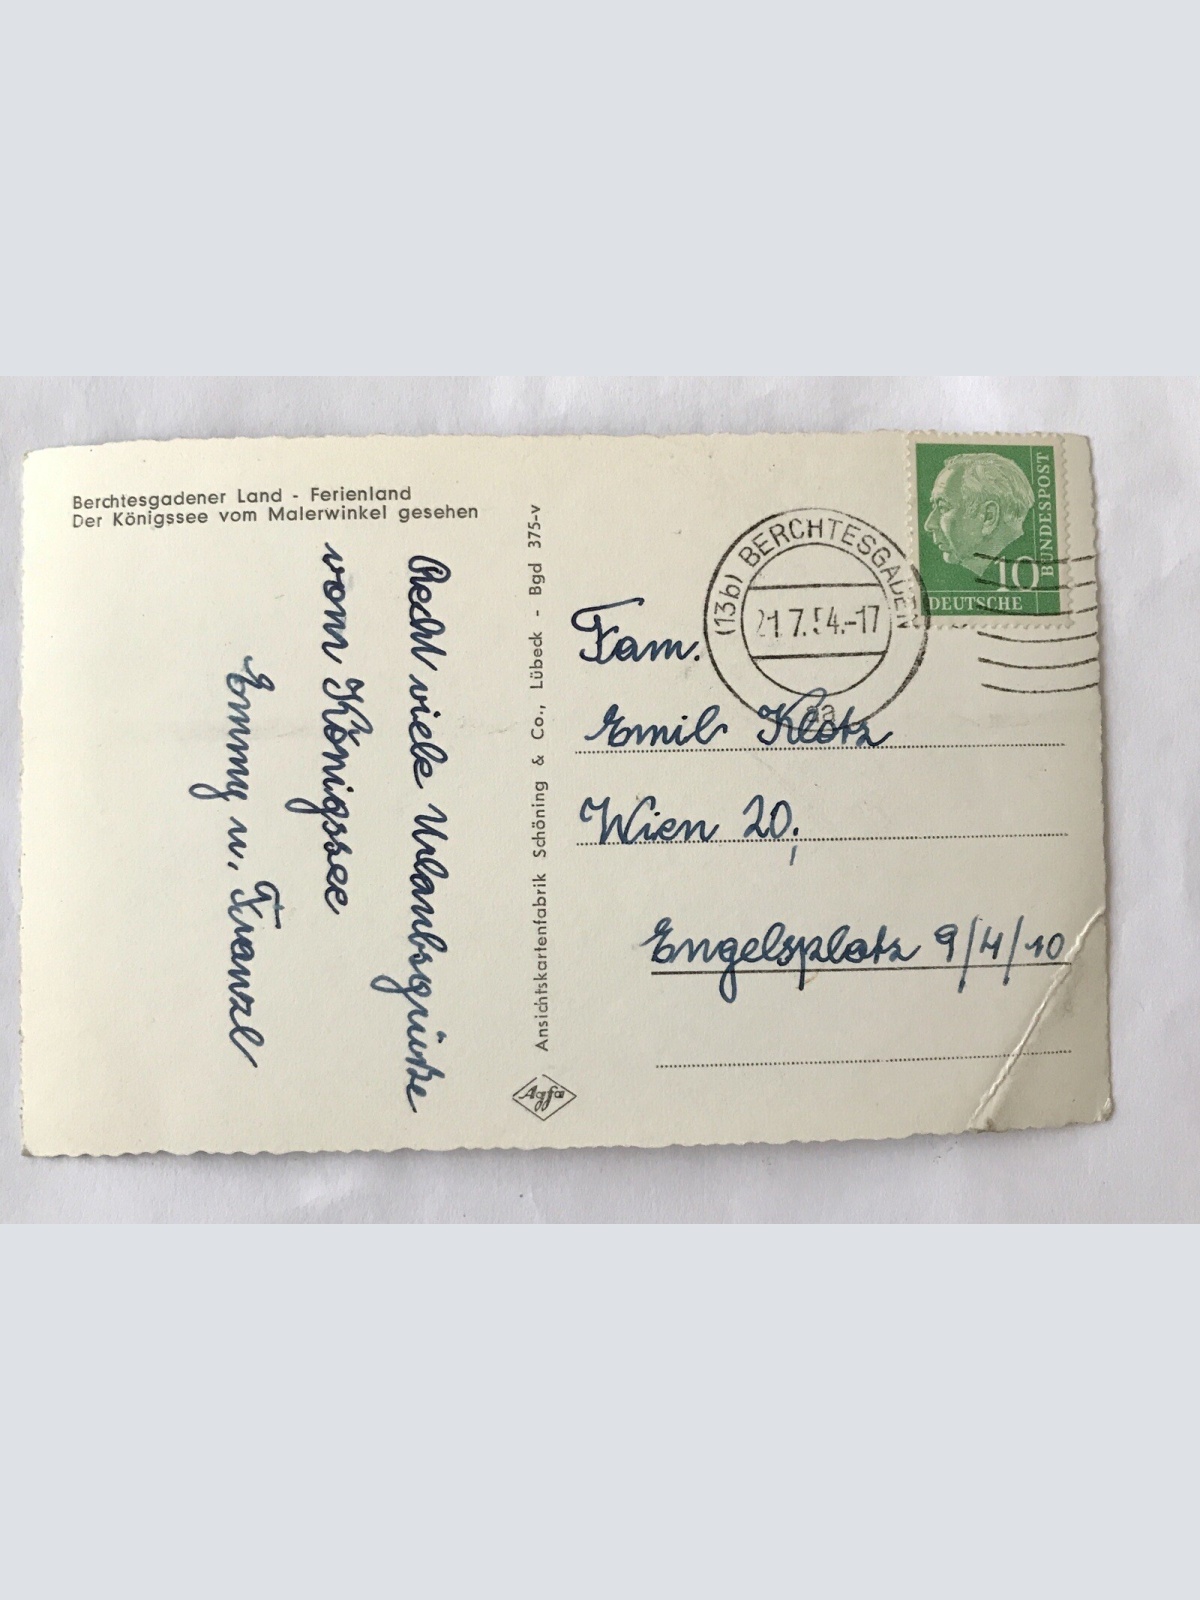 Berchtesgadener Land - Ferienland
Der Königssee vom Malerwinkel gesehen
Recht viele Urlaubsgrüße
vom Königssee
Emmy u. Franzl
Ansichtskartenfabrik Schöning & Co., Lübeck - Bgd 375-v
Agfa
(13b) BERCHTESGADEN
21.7.54.-17
aa
10
DEUTSCHE
BUNDESPOST
Fam.
Emil Klotz
Wien 20,
Engelsplatz 9/4/10